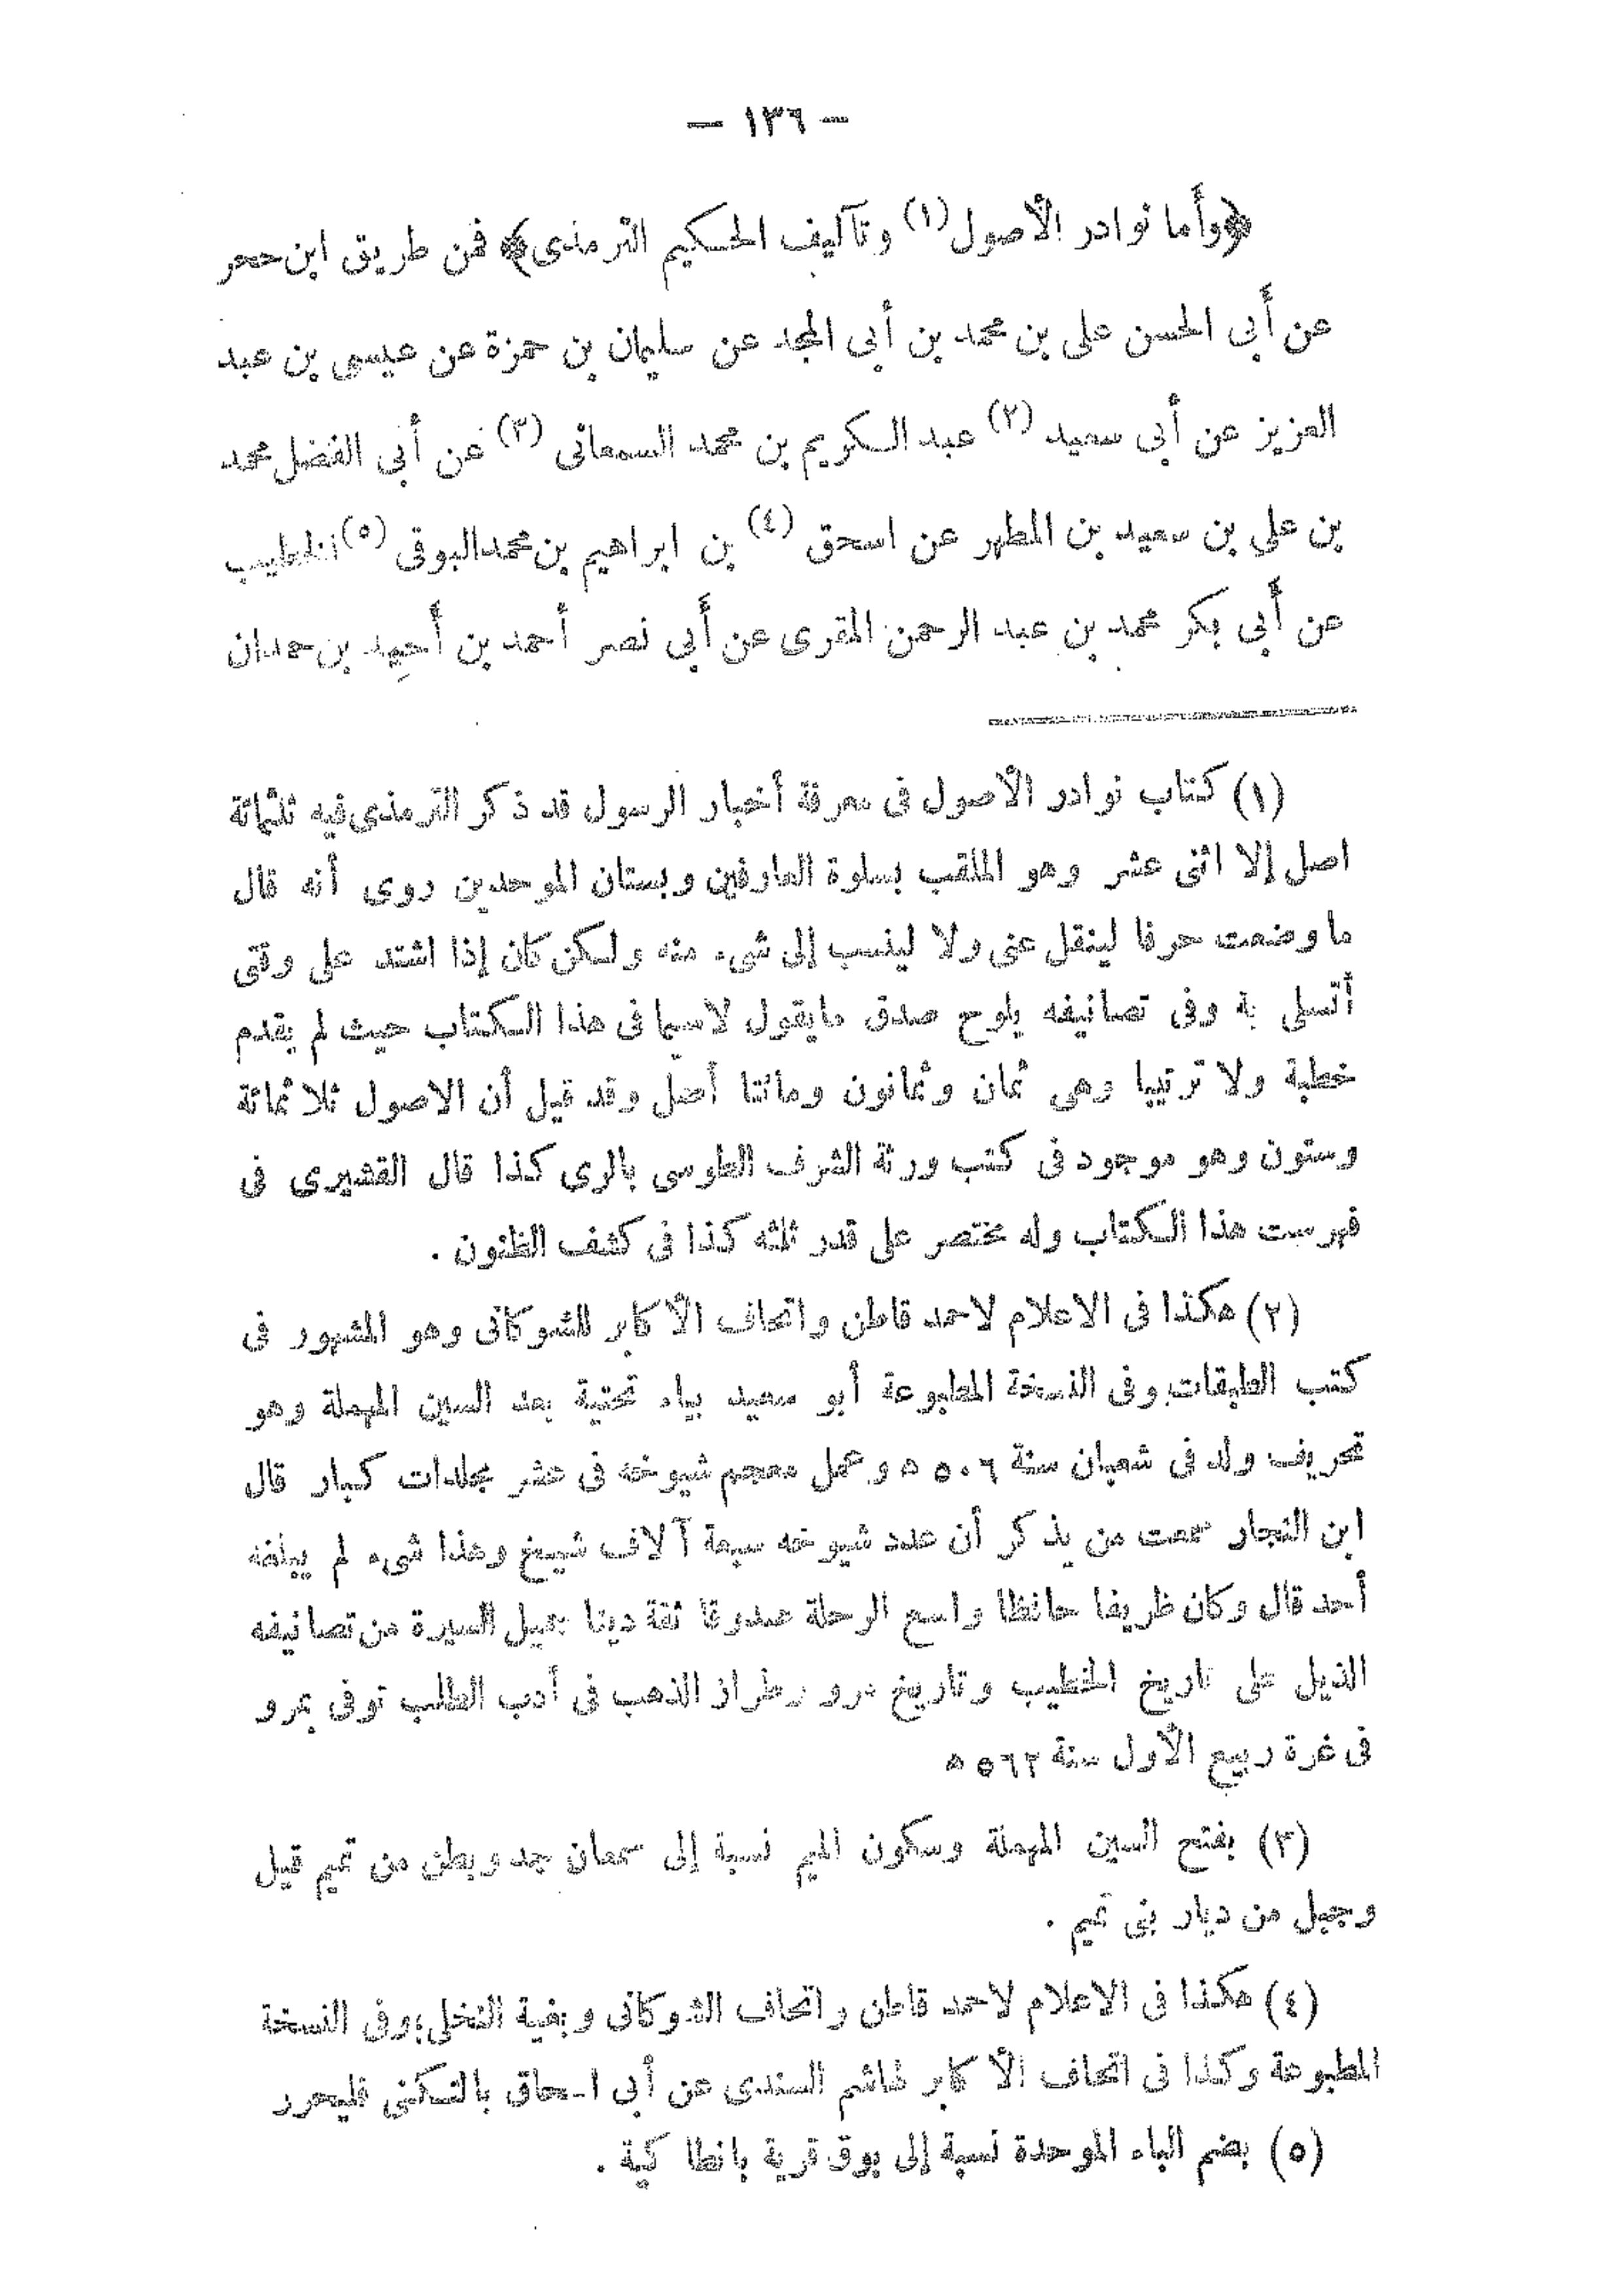 — ١٣٦ —
﴿وأما نوادر الأصول (١) وتآليف الحكيم الترمذى﴾ فمن طريق ابن حجر
عن أبي الحسن على بن محمد بن أبي المجد عن سليمان بن حمزة عن عيسى بن عبد
العزيز عن أبى سعيد (٢) عبد الكريم بن محمد السمعانى (٣) عن أبى الفضل محمد
بن على بن سعيد بن المطهر عن اسحق (٤) بن ابراهيم بن محمد البوقى (٥) الخطيب
عن أبي بكر محمد بن عبد الرحمن المقرى عن أبي نصر أحمد بن أحيد بن حمدان
(١) كتاب نوادر الأصول فى معرفة أخبار الرسول قد ذكر الترمذى فيه ثلثمائة
اصل إلا اثنى عشر وهو الملقب بسلوة العارفين وبستان الموحدين روى أنه قال
ما وضعت حرفا لينقل عنى ولا لينسب إلى شىء منه ولكن كان إذا اشتد على وقتى
أتسلى به وفى تصانيفه يلوح صدق مايقول لاسيما فى هذا الكتاب حيث لم يقدم
خطبة ولا ترتيبا وهى ثمان وثمانون ومائتا أصل وقد قيل أن الاصول ثلاثمائة
وستون وهو موجود فى كتب ورثة الشرف الطوسى بالرى كذا قال القشيرى فى
فهرست هذا الكتاب وله مختصر على قدر ثلثه كذا فى كشف الظنون .
(٢) هكذا فى الاعلام لاحمد قاطن واتحاف الأكابر للشوكانى وهو المشهور فى
كتب الطبقات وفى النسخة المطبوعة أبو سعيد بياء تحتية بعد السين المهملة وهو
تحريف ولد فى شعبان سنة ٥٠٦ ه وعمل معجم شيوخه فى عشر مجلدات كبار قال
ابن النجار سمعت من يذكر أن عدد شيوخه سبعة آلاف شيخ وهذا شىء لم يبلغه
أحد قال وكان ظريفا حافظا واسع الرحلة صدوقا ثقة دينا جميل السيرة من تصانيفه
الذيل على تاريخ الخطيب وتاريخ مرو وطراز الذهب فى أدب الطلب توفى بمرو
فى غرة ربيع الأول سنة ٥٦٢ ه
(٣) بفتح السين المهملة وسكون الميم نسبة إلى سمعان جد وبطن من تميم قيل
وجبل من ديار بنى تميم .
(٤) هكذا فى الاعلام لاحمد قاطن واتحاف الشوكانى وبغية النخلى؛ وفى النسخة
المطبوعة وكذا فى اتحاف الأكابر لهاشم السندى عن أبى اسحاق بالتكنى فليحرر
(٥) بضم الباء الموحدة نسبة إلى بوق قرية بانطاكية .